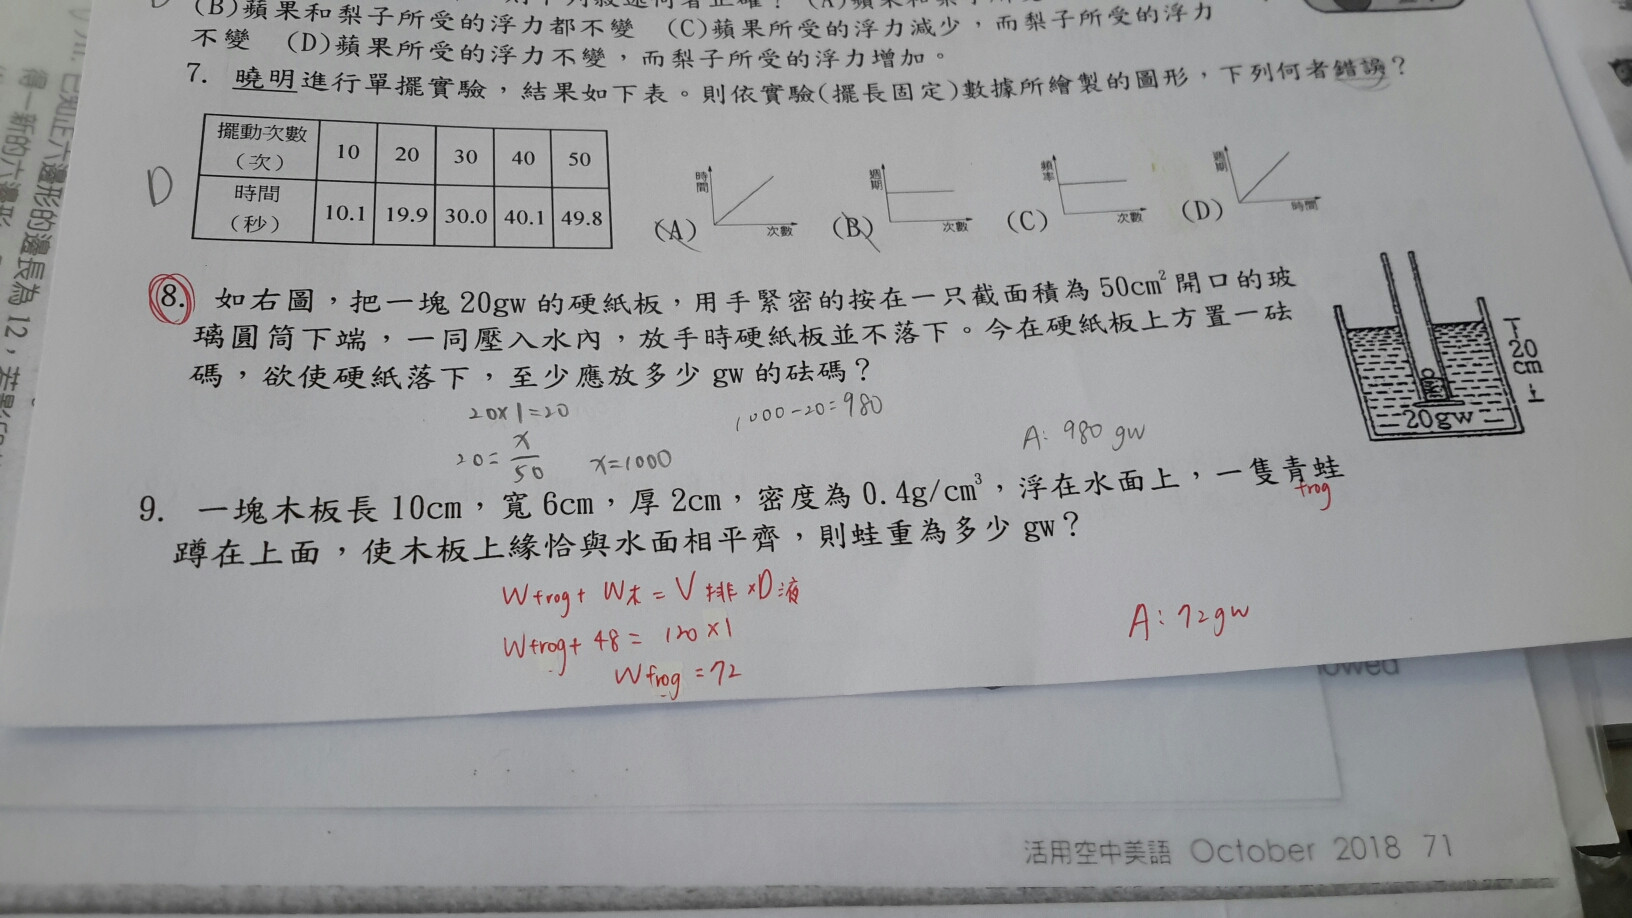 (B)蘋果和梨子所受的浮力都不變 (C)蘋果所受的浮力減少,而梨子所受的浮力
不變 (D)蘋果所受的浮力不變,而梨子所受的浮力增加。
7. 曉明進行單擺實驗,結果如下表。則依實驗(擺長固定)數據所繪製的圖形,下列何者錯誤?
D
擺動次數(次) 10 20 30 40 50
時間(秒) 10.1 19.9 30.0 40.1 49.8
(A) 時間 次數 (B) 週期 次數 (C) 頻率 次數 (D) 週期 時間
8. 如右圖,把一塊20gw的硬紙板,用手緊密的按在一只截面積為50cm²開口的玻
璃圓筒下端,一同壓入水內,放手時硬紙板並不落下。今在硬紙板上方置一砝
碼,欲使硬紙落下,至少應放多少gw的砝碼?
20cm
20gw
20×1=20
20=x/50 x=1000
1000-20=980
A: 980 gw
9. 一塊木板長10cm,寬6cm,厚2cm,密度為0.4g/cm³,浮在水面上,一隻青蛙
frog
蹲在上面,使木板上緣恰與水面相平齊,則蛙重為多少gw?
Wfrog+ W木 = V排×D液
Wfrog+ 48 = 120×1
Wfrog =72
A: 72gw
得一新的六邊形
已知正六邊形的邊長為12,若
lowed
活用空中美語 October 2018 71